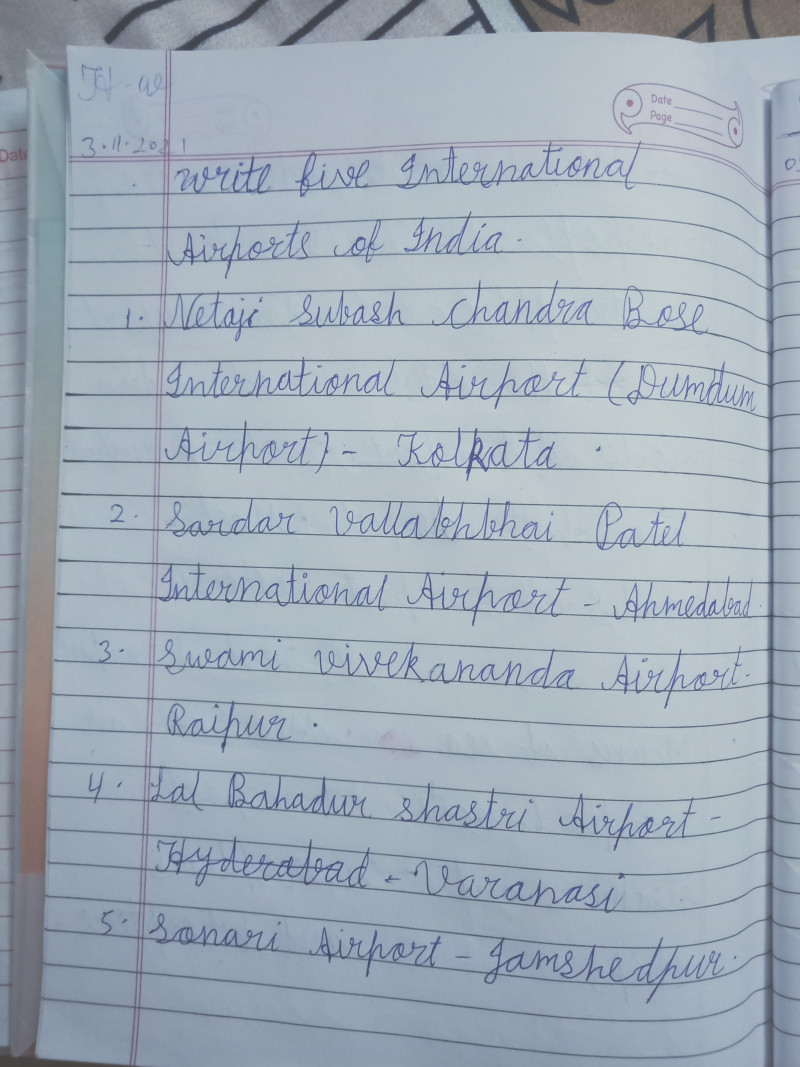 H.W
Date
Page
3.11.2021
Write five International
Airports of India.
1. Netaji Subash Chandra Bose
International Airport (Dumdum
Airport) - Kolkata.
2. Sardar Vallabhbhai Patel
International Airport - Ahmedabad.
3. Swami Vivekananda Airport-
Raipur.
4. Lal Bahadur Shastri Airport -
Hyderabad - Varanasi
5. Sonari Airport - Jamshedpur.
Date